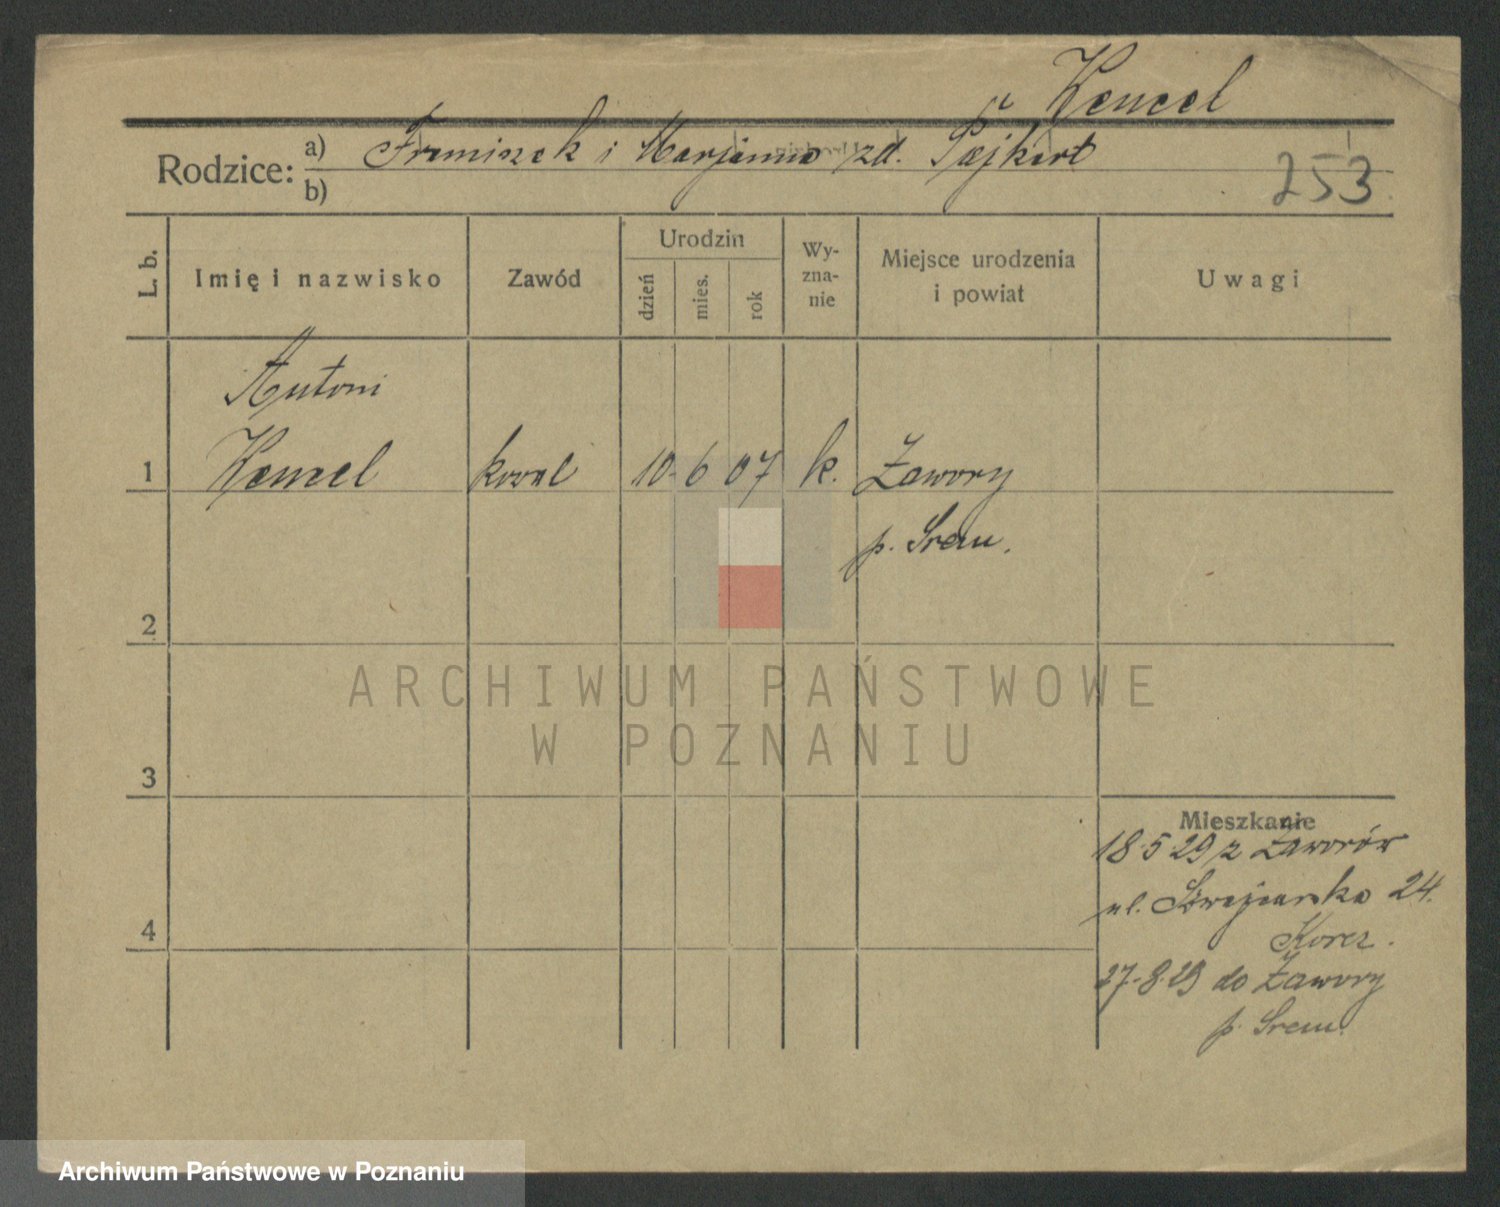 Kencel
Rodzice: a) Franciszek i Marjanna zd. Pajkert
b)
253
L. b.
Imię i nazwisko
Zawód
Urodzin
dzień
mies.
rok
Wy-
zna-
nie
Miejsce urodzenia
i powiat
Uwagi
Antoni
1 Kencel kowal 10 6 07 k. Zawory
p. Śrem.
2
ARCHIWUM PAŃSTWOWE
W POZNANIU
3
Mieszkanie
18.5 29 z Zaworów
ul. Szwajcarska 24.
4
27-8.29 do Zawory
p. Śrem.
Archiwum Państwowe w Poznaniu